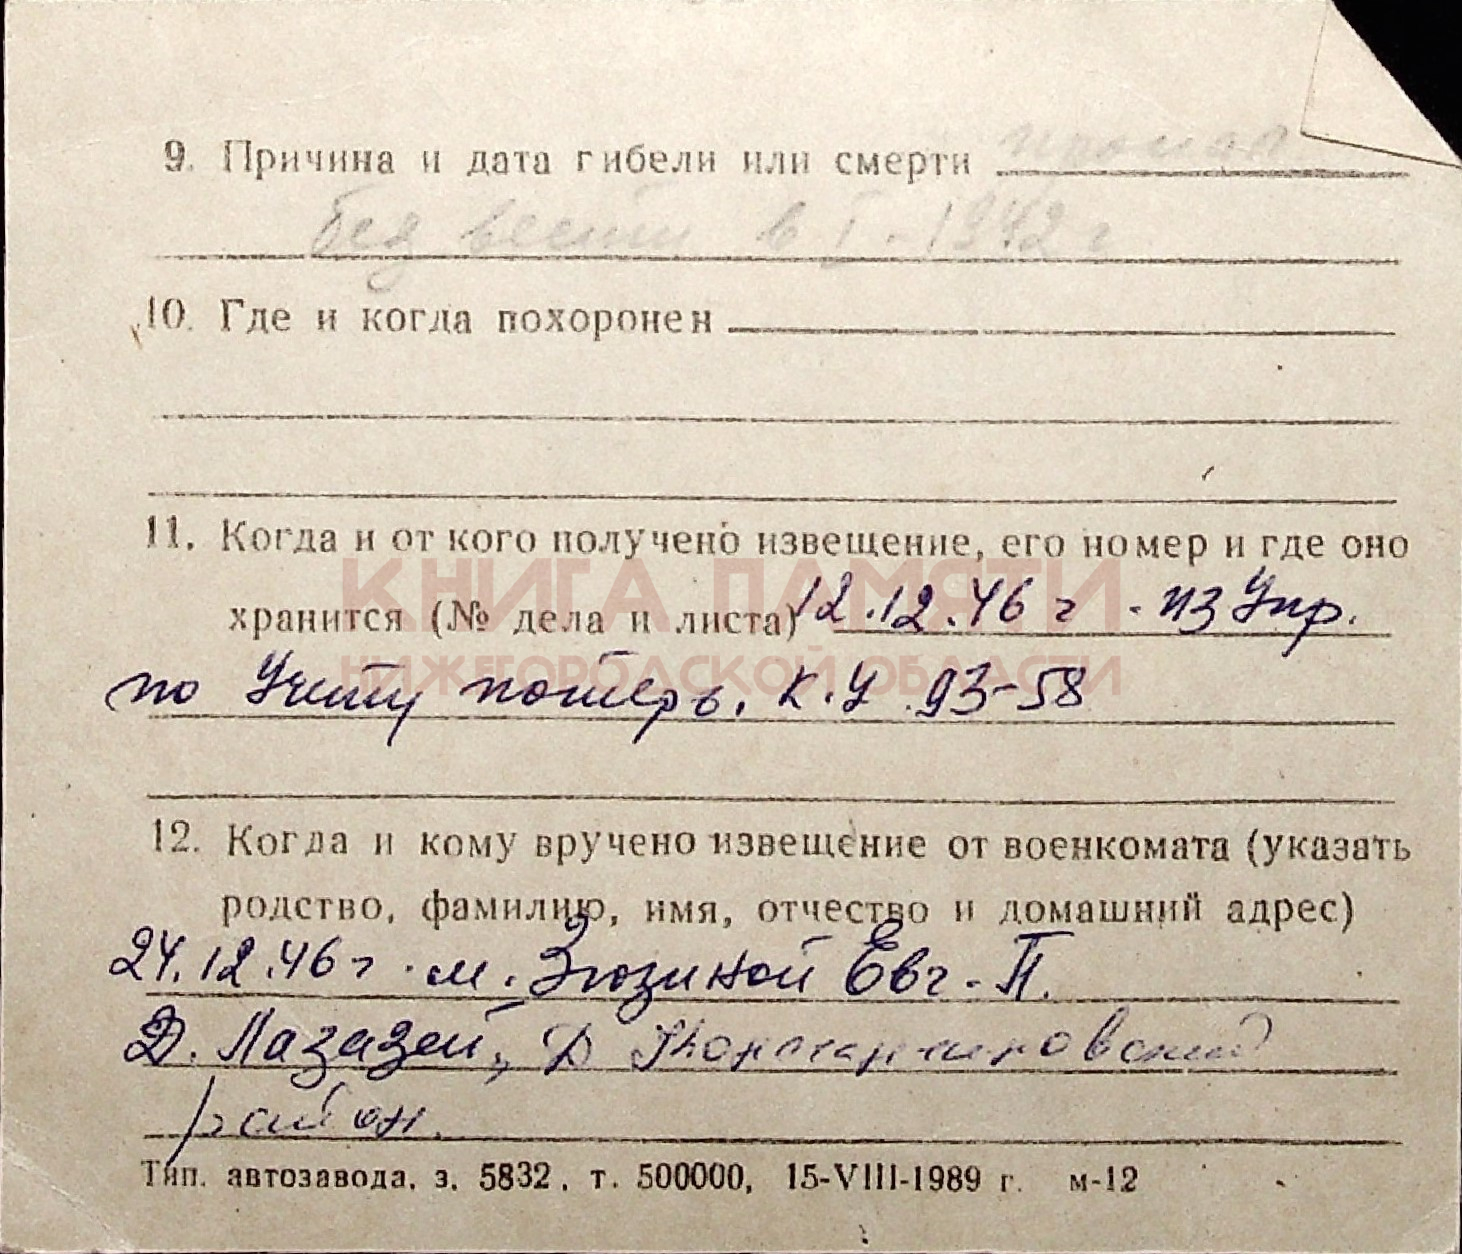 9. Причина и дата гибели или смерти пропал
без вести в I-1942 г
10. Где и когда похоронен
11. Когда и от кого получено извещение, его номер и где оно
хранится (№ дела и листа) 12.12.46 г. из Упр.
КНИГА ПАМЯТИ
по Учету потерь. К.У 93-58
НИЖЕГОРОДСКОЙ ОБЛАСТИ
12. Когда и кому вручено извещение от военкомата (указать
родство, фамилию, имя, отчество и домашний адрес)
24.12.46 г. м. Зюзиной Евг. П.
Д. Лазазей, Д Константиновский
район.
Тип. автозавода, з. 5832, т. 500000, 15-VIII-1989 г. м-12